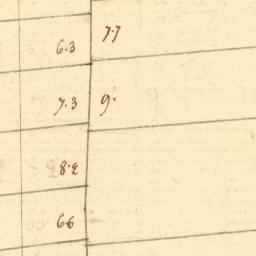 7.7
6.3
7.3 9.
8.2
66